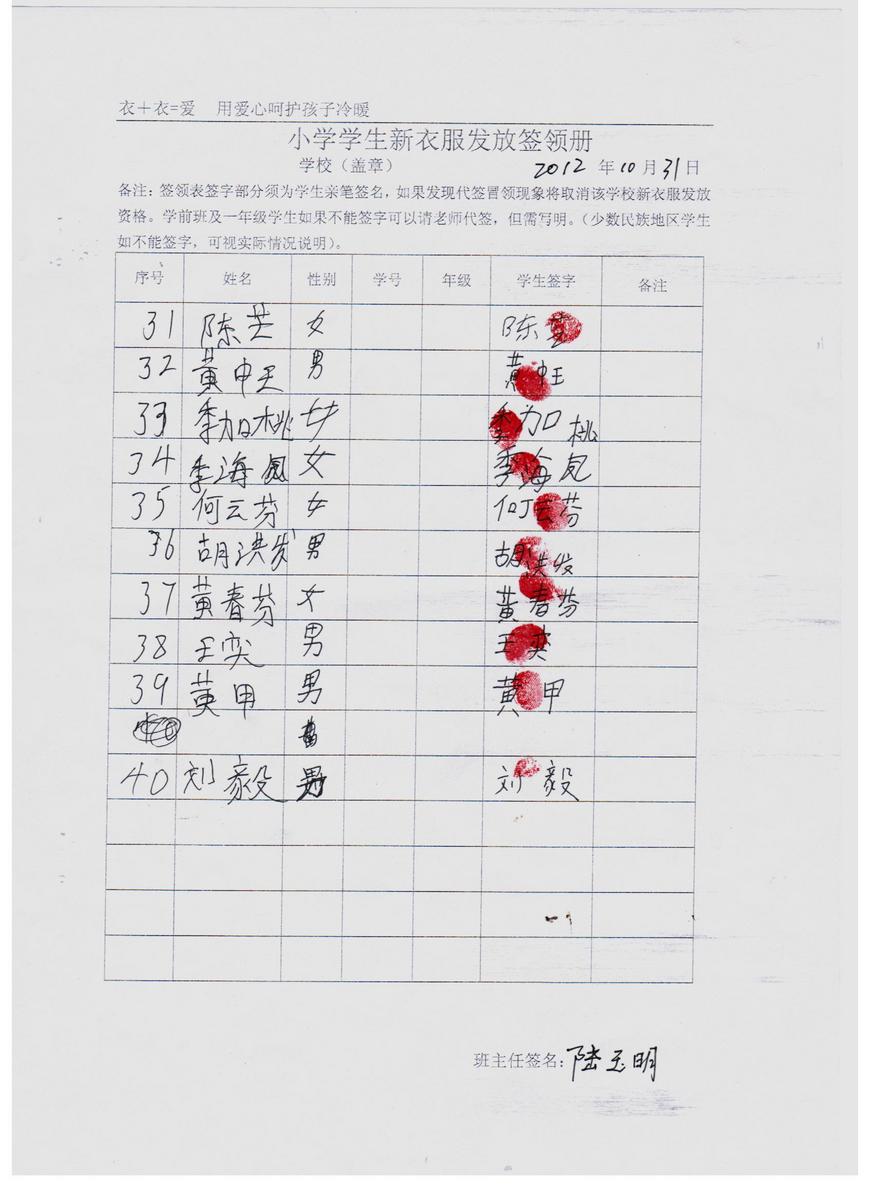 衣＋衣=爱 用爱心呵护孩子冷暖
小学学生新衣服发放签领册
学校（盖章） 2012 年 10 月 31 日
备注：签领表签字部分须为学生亲笔签名，如果发现代签冒领现象将取消该学校新衣服发放
资格。学前班及一年级学生如果不能签字可以请老师代签，但需写明。（少数民族地区学生
如不能签字，可视实际情况说明）。
序号 姓名 性别 学号 年级 学生签字 备注
31 陈 女 陈
32 黄中王 男 黄中王
33 李加桃 女 李加桃
34 李海凤 女 李海凤
35 何云芬 女 何云芬
36 胡洪发 男 胡洪发
37 黄春芬 女 黄春芬
38 王奕 男 王奕
39 黄甲 男 黄甲
40 刘毅 男 刘毅
班主任签名：陆玉明